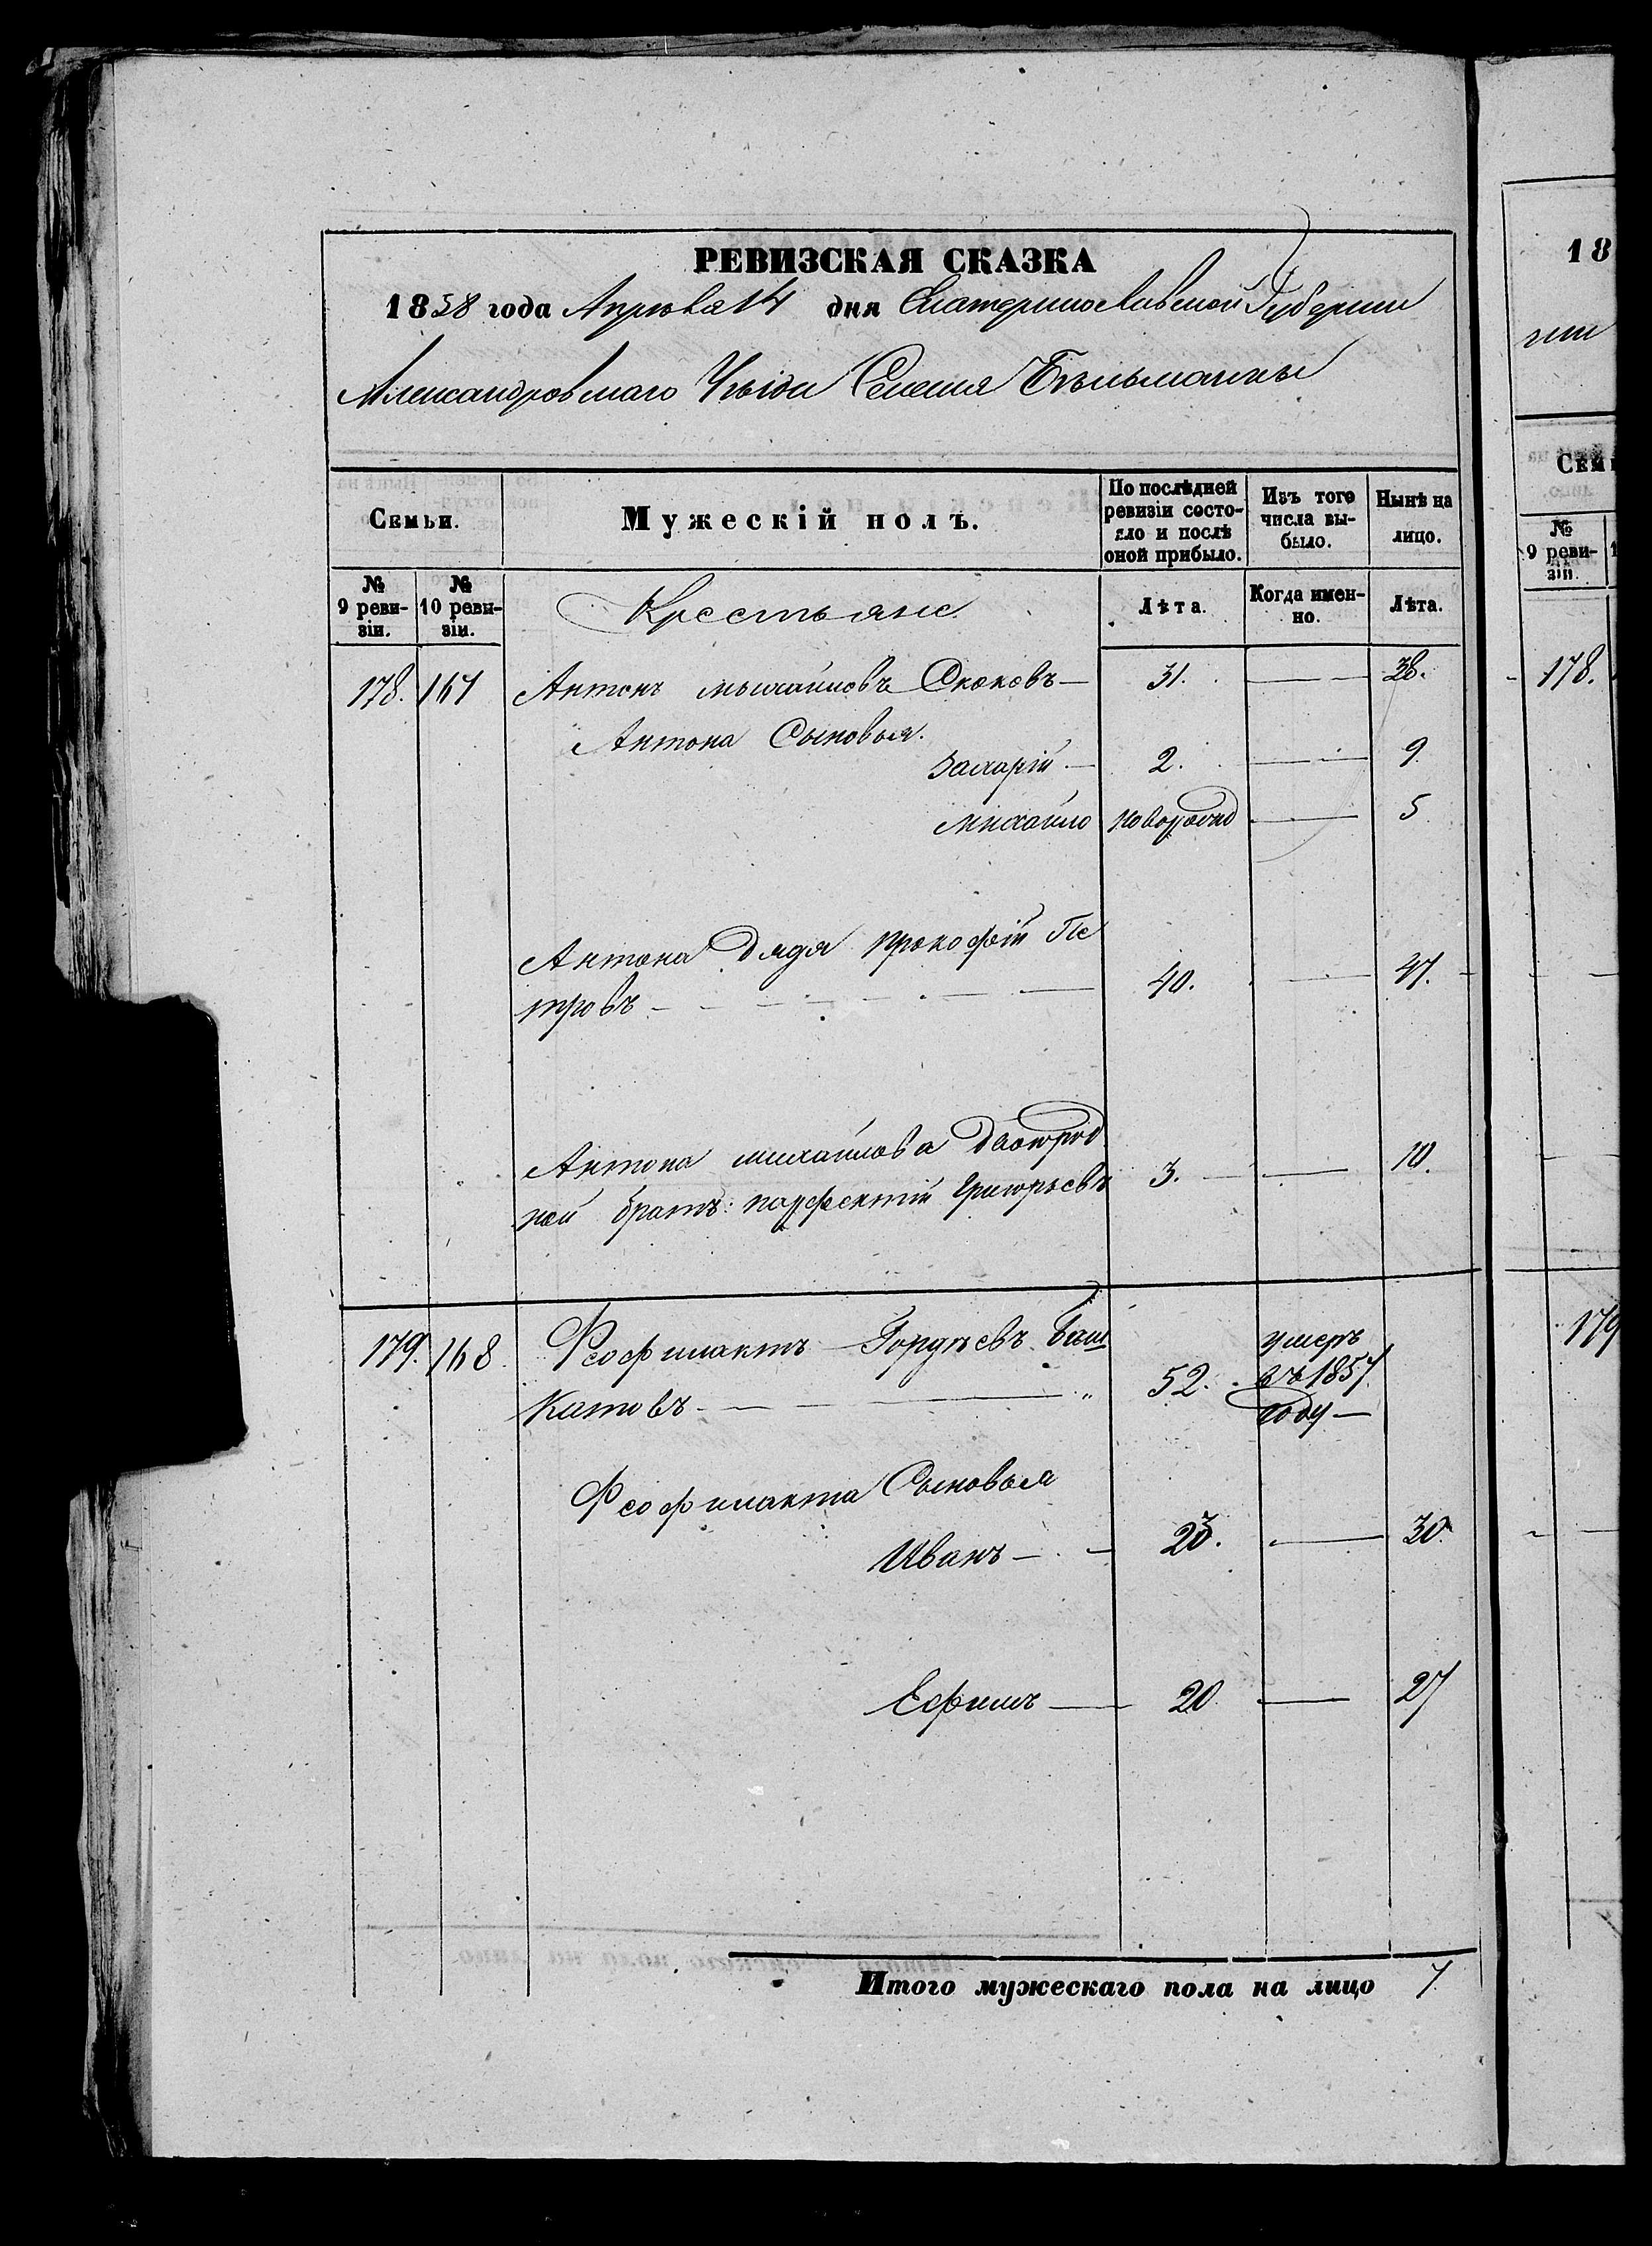 РЕВИЗСКАЯ СКАЗКА
1858 года Апрѣля 14 дня Екатеринославской Губерніи
Александровскаго Уѣзда Селенія Бѣльманки
Семьи.
Мужескій полъ.
По послѣдней ревизіи состояло и послѣ оной прибыло.
Изъ того числа выбыло.
Нынѣ на лицо.
№ 9 ревизіи.
№ 10 ревизіи.
Крестьяне
Лѣта.
Когда именно.
Лѣта.
178. 167 Антонъ михайловъ Скоковъ — 31. — 38.
Антона Сыновья.
Захарій — 2. — 9
михайло новорожд — 5
Антона Дядя прокофій Пе
тровъ — 40. — 47.
Антона михайлова Двоюрод
ной братъ: парфентій Григорьевъ 3. — 10.
179. 168 Феофилактъ Гордѣевъ Баш
катовъ — 52. умеръ
въ 1857
году —
Феофилакта Сыновья
Иванъ — 23. — 30.
Ефимъ — 20 — 27
Итого мужескаго пола на лицо 7
18
ніи
Семь
№
9 реви-
зіи.
178.
179